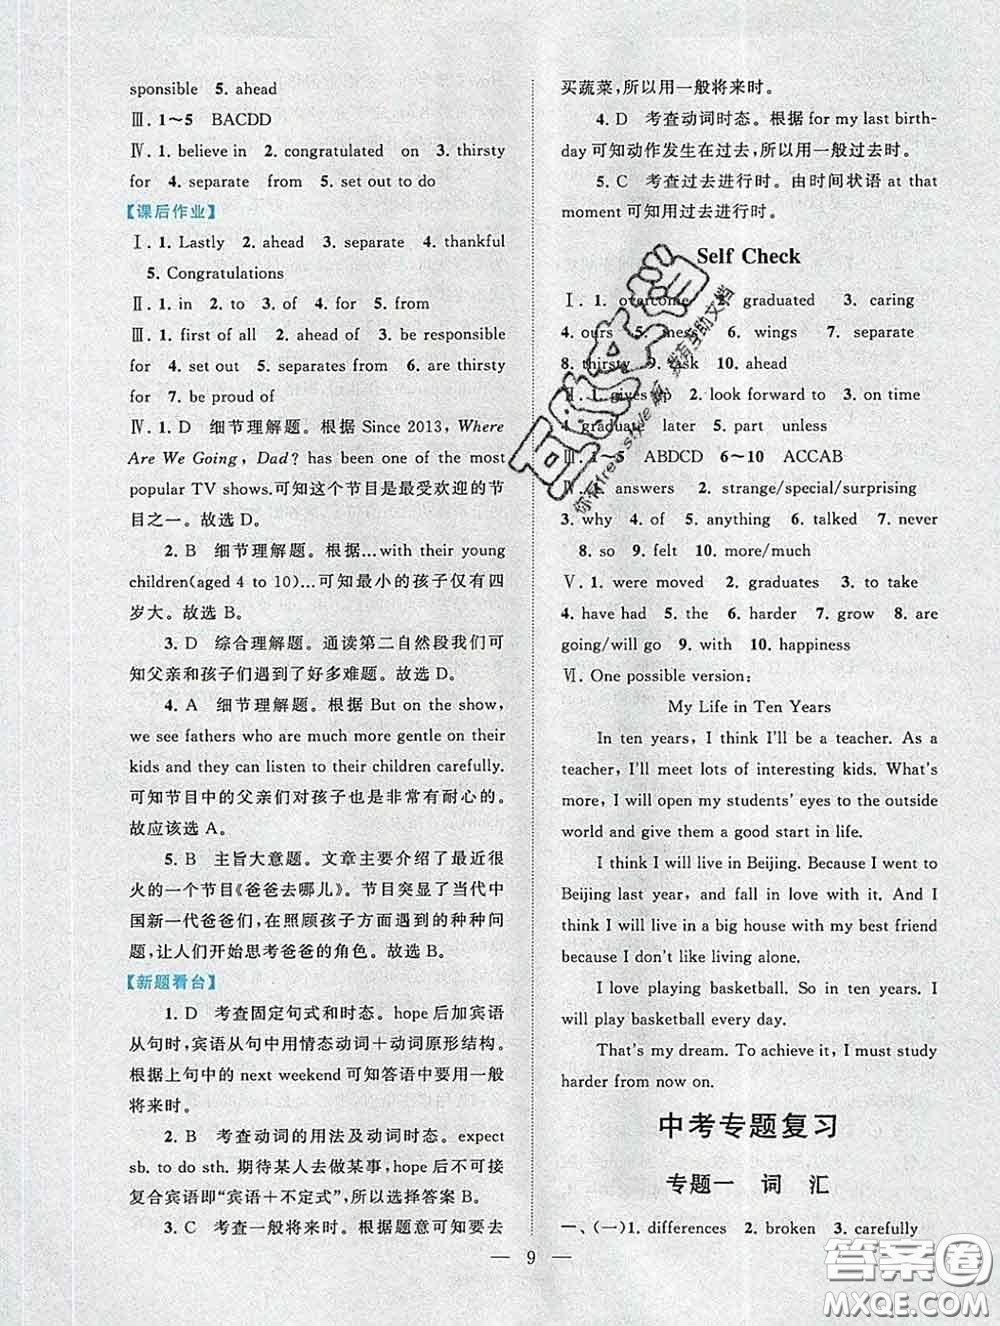 sponsible 5. ahead
Ⅲ. 1～5 BACDD
Ⅳ. 1. believe in 2. congratulated on 3. thirsty
for 4. separate from 5. set out to do
【课后作业】
Ⅰ. 1. Lastly 2. ahead 3. separate 4. thankful
5. Congratulations
Ⅱ. 1. in 2. to 3. of 4. for 5. from
Ⅲ. 1. first of all 2. ahead of 3. be responsible
for 4. set out 5. separates from 6. are thirsty
for 7. be proud of
Ⅳ. 1. D 细节理解题。根据 Since 2013, Where
Are We Going, Dad? has been one of the most
popular TV shows.可知这个节目是最受欢迎的节
目之一。故选 D。
2. B 细节理解题。根据…with their young
children(aged 4 to 10)…可知最小的孩子仅有四
岁大。故选 B。
3. D 综合理解题。通读第二自然段我们可
知父亲和孩子们遇到了好多难题。故选 D。
4. A 细节理解题。根据 But on the show,
we see fathers who are much more gentle on their
kids and they can listen to their children carefully.
可知节目中的父亲们对孩子也是非常有耐心的。
故应该选 A。
5. B 主旨大意题。文章主要介绍了最近很
火的一个节目《爸爸去哪儿》。节目突显了当代中
国新一代爸爸们，在照顾孩子方面遇到的种种问
题，让人们开始思考爸爸的角色。故选 B。
【新题看台】
1. D 考查固定句式和时态。hope 后加宾语
从句时，宾语从句中用情态动词＋动词原形结构。
根据上句中的 next weekend 可知答语中要用一般
将来时。
2. B 考查动词的用法及动词时态。expect
sb. to do sth. 期待某人去做某事，hope 后不可接
复合宾语即“宾语＋不定式”，所以选择答案 B。
3. C 考查一般将来时。根据题意可知要去
买蔬菜，所以用一般将来时。
4. D 考查动词时态。根据 for my last birth-
day 可知动作发生在过去，所以用一般过去时。
5. C 考查过去进行时。由时间状语 at that
moment 可知用过去进行时。
Self Check
Ⅰ. 1. overcome 2. graduated 3. caring
4. ours 5. 6. wings 7. separate
8. thirsty 9. task 10. ahead
Ⅱ. 1. gives up 2. look forward to 3. on time
4. graduate later 5. part unless
Ⅲ. 1～5 ABDCD 6～10 ACCAB
Ⅳ. 1. answers 2. strange/special/surprising
3. why 4. of 5. anything 6. talked 7. never
8. so 9. felt 10. more/much
Ⅴ. 1. were moved 2. graduates 3. to take
4. have had 5. the 6. harder 7. grow 8. are
going/will go 9. with 10. happiness
Ⅵ. One possible version:
My Life in Ten Years
In ten years, I think I'll be a teacher. As a
teacher, I'll meet lots of interesting kids. What's
more, I will open my students' eyes to the outside
world and give them a good start in life.
I think I will live in Beijing. Because I went to
Beijing last year, and fall in love with it. And I
think I will live in a big house with my best friend
because I don't like living alone.
I love playing basketball. So in ten years, I
will play basketball every day.
That's my dream. To achieve it, I must study
harder from now on.
中考专题复习
专题一 词 汇
一、(一)1. differences 2. broken 3. carefully
9
答案圈
MXQE.COM